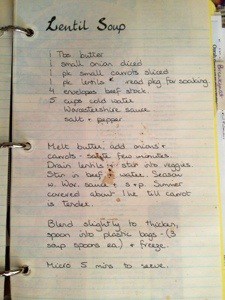 Lentil Soup
1 Tbs butter
1 small onion diced
1 pk small carrots sliced
1 pk lentils * read pkg for soaking
4 envelopes beef stock
5 cups cold water
Worcestershire sauce
salt + pepper
Melt butter, add onions +
carrots - sauté few minutes.
Drain lentils + stir into veggies.
Stir in beef + water. Season
w. Wor. sauce + s + p. Simmer
covered about 1 hr till carrot
is tender.
Blend slightly to thicken,
spoon into plastic bags - (3
soup spoons ea.) + freeze.
Micro 5 mins to serve.